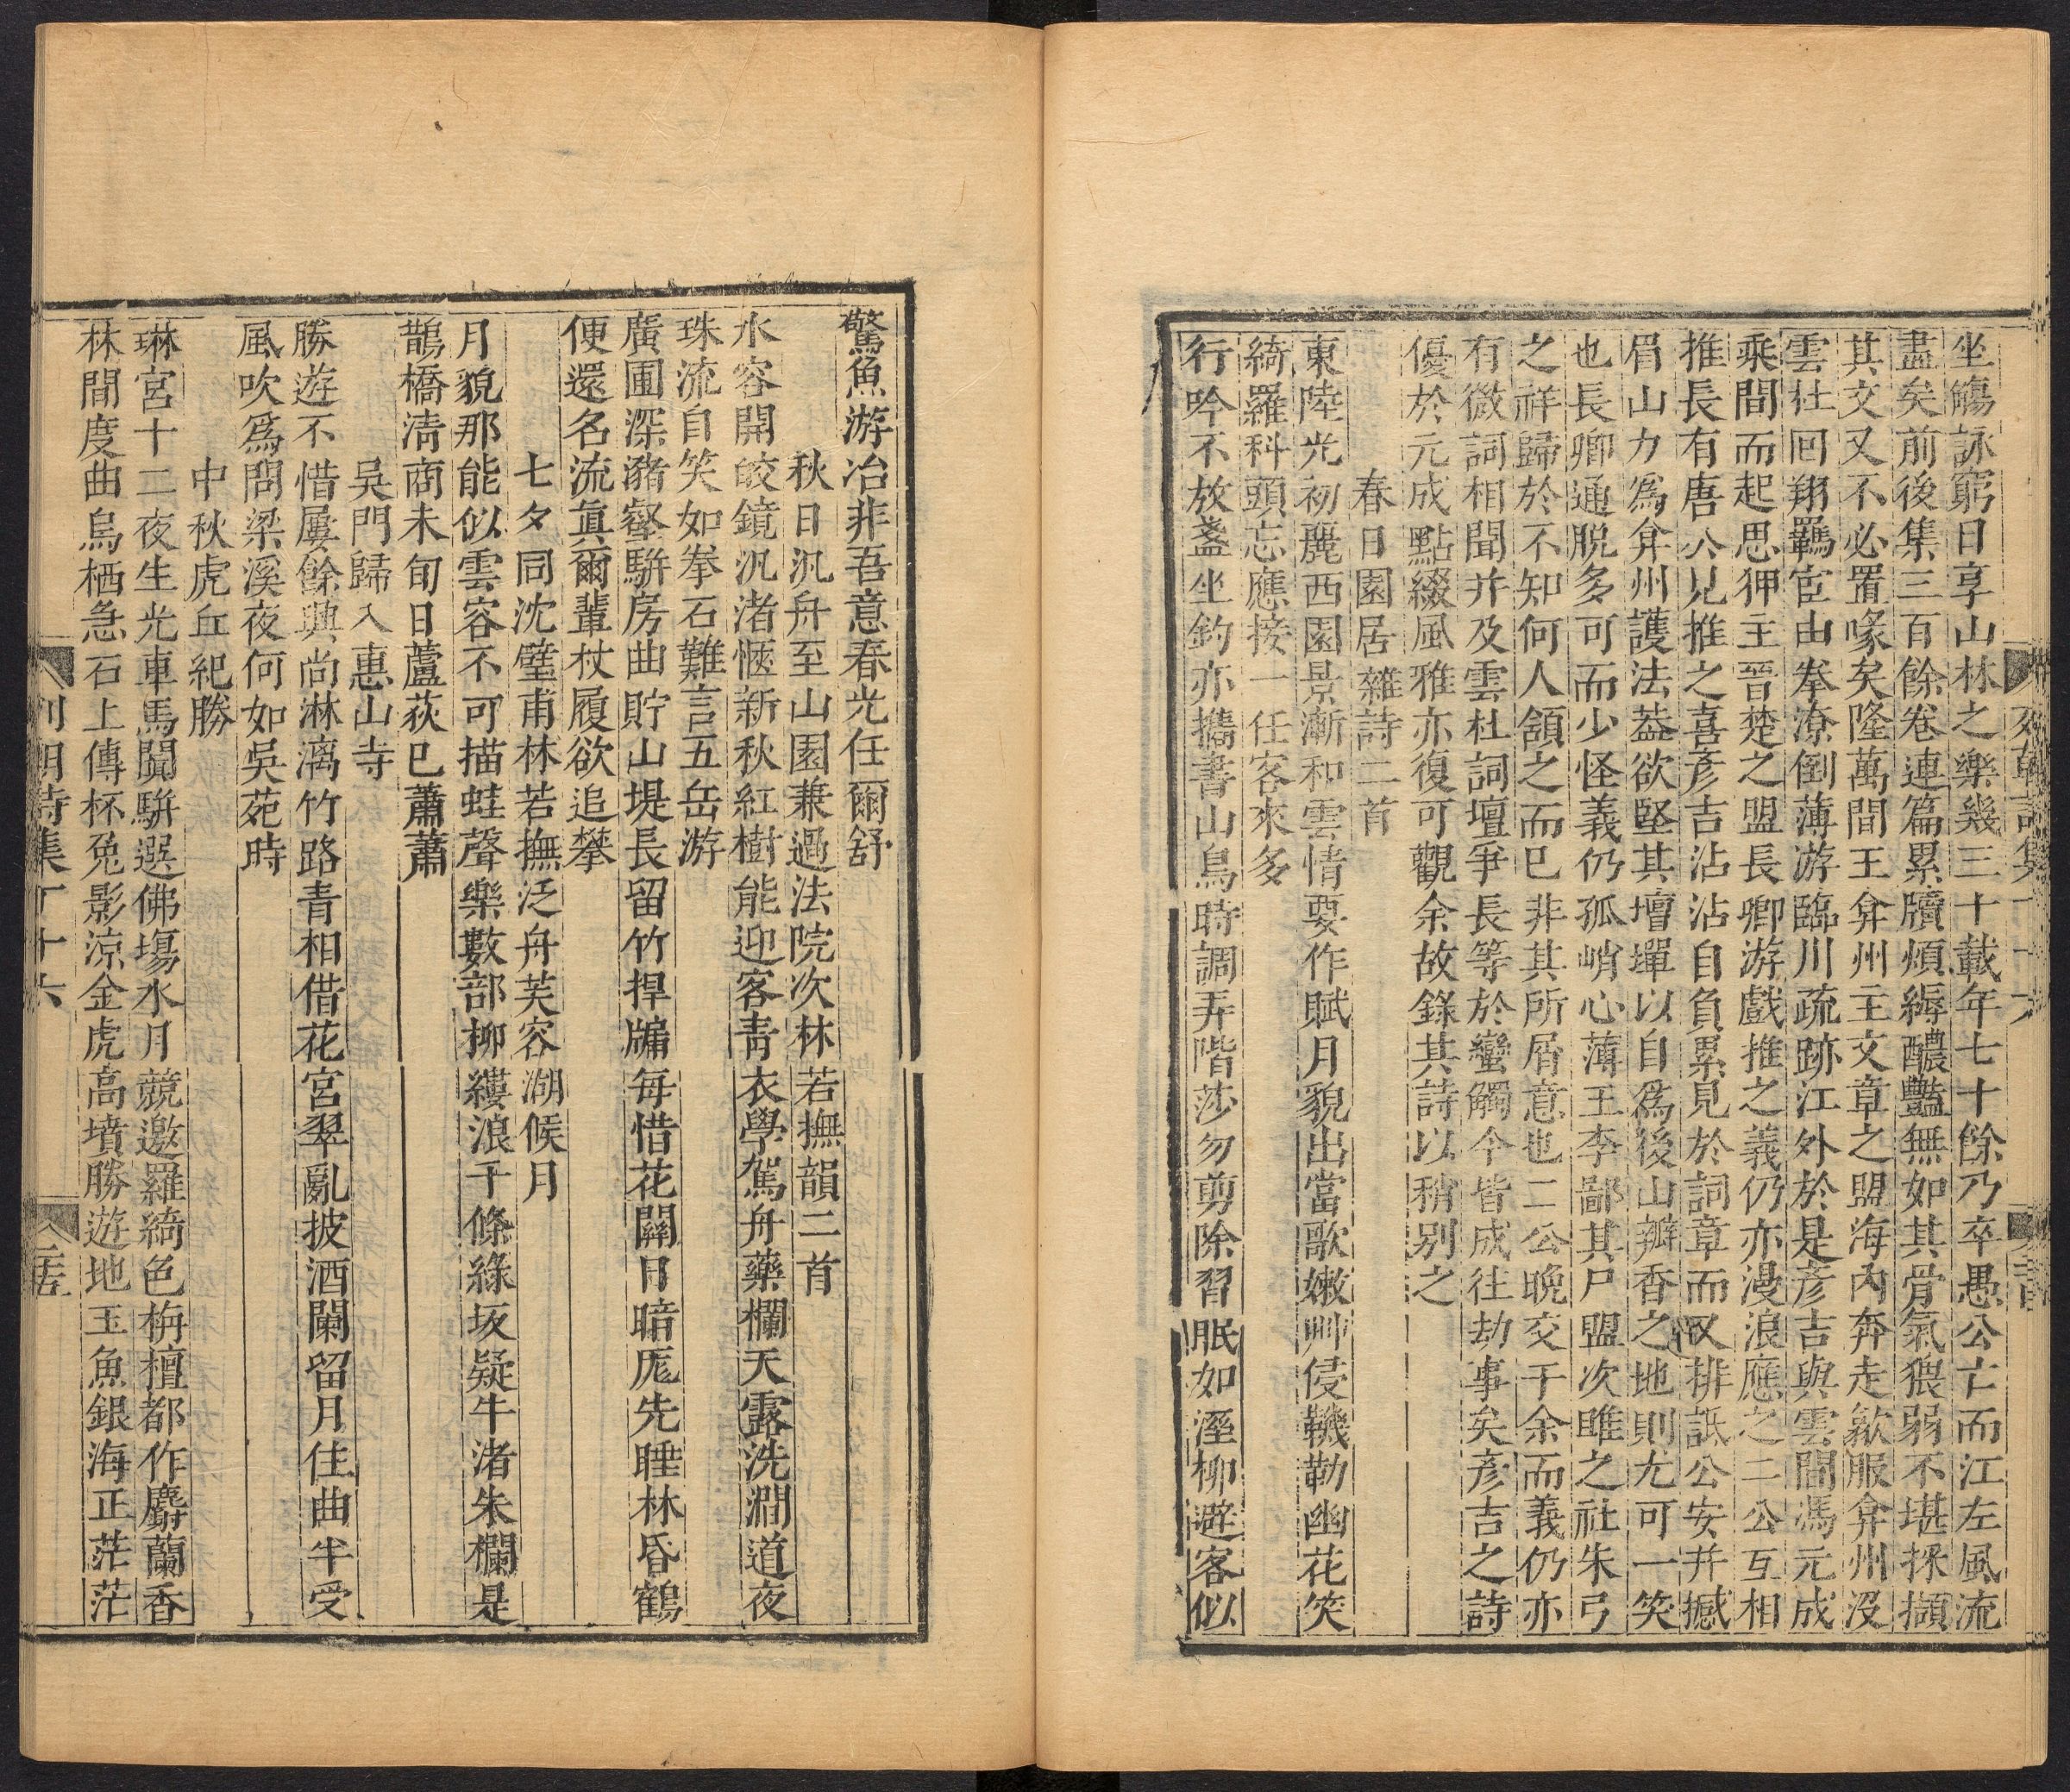 坐觴詠窮日享山林之樂幾三十載年七十餘乃卒愚公亡而江左風流
盡矣前後集三百餘卷連篇累牘煩縟醲豔無如其骨氣猥弱不堪採擷
其文又不必置喙矣隆萬間王弇州主文章之盟海內奔走歙服弇州沒
雲杜回翔羈宦由拳潦倒薄游臨川疏跡江外於是彥吉與雲間馮元成
乘間而起思狎主晉楚之盟長卿游戲推之義仍亦漫浪應之二公互相
推長有唐公見推之喜彥吉沾沾自負累見於詞章而又排詆公安幷撼
眉山力爲弇州護法葢欲堅其壇墠以自爲後山瓣香之地則尤可一笑
也長卿通脫多可而少怪義仍孤峭心薄王李鄙其尸盟次雎之社朱弓
之祥歸於不知何人頷之而已非其所屑意也二公晚交于余而義仍亦
有微詞相聞幷及雲杜詞壇爭長等於蠻觸今皆成往劫事矣彥吉之詩
優於元成點綴風雅亦復可觀余故錄其詩以稍别之
春日園居雜詩二首
東陸光初麗西園景漸和雲情要作賦月貌出當歌嫩艸侵鞿勒幽花笑
綺羅科頭忘應接一任客來多
行吟不放盞坐釣亦攜書山鳥時調弄階莎勿剪除習眠如溼柳避客似
驚魚游冶非吾意春光任爾舒
秋日汎舟至山園兼過法院次林若撫韻二首
水容開皎鏡汎渚愜新秋紅樹能迎客靑衣學駕舟藥欄天露洗澗道夜
珠流自笑如拳石難言五岳游
廣圃深瀦壑駢房曲貯山堤長留竹捍牖每惜花關日暗厖先睡林昏鶴
便還名流眞爾輩杖履欲追攀
七夕同沈璧甫林若撫泛舟芙容湖候月
月貌那能似雲容不可描蛙聲樂數部柳縷浪千條綠坂疑牛渚朱欄是
鵲橋清商未旬日蘆荻已蕭蕭
吳門歸入惠山寺
勝遊不惜屢餘興尚淋漓竹路青相借花宮翠亂披酒闌留月住曲半受
風吹爲問梁溪夜何如吳苑時
中秋虎丘紀勝
琳宮十二夜生光車馬闐駢選佛塲水月競邀羅綺色栴檀都作麝蘭香
林間度曲烏栖急石上傳杯兔影涼金虎高墳勝遊地玉魚銀海正茫茫
列朝詩集丁十六